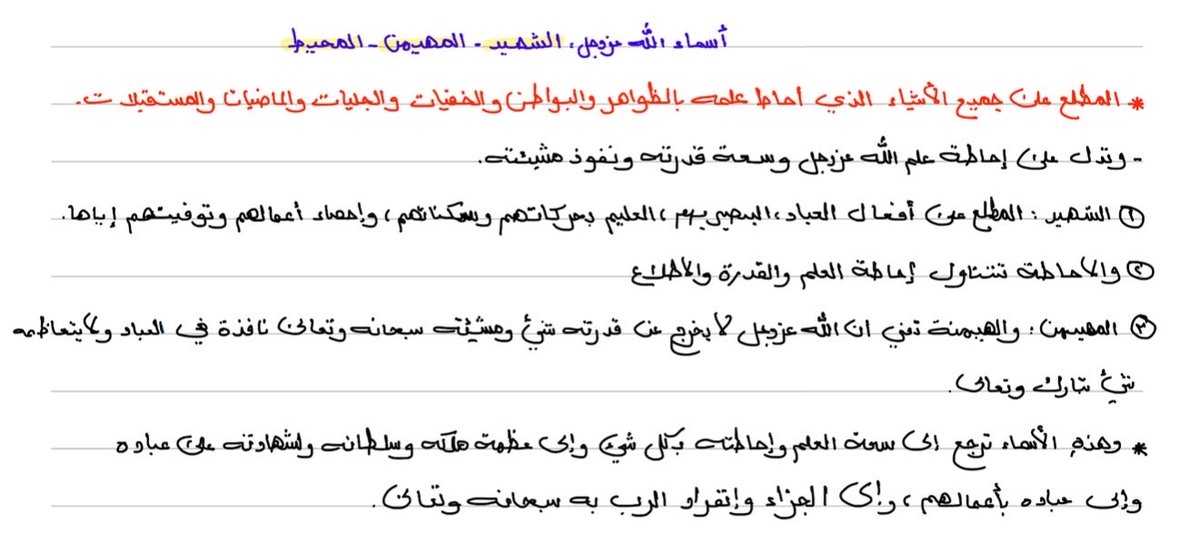 أسماء الله عزوجل: الشهيد - المهيمن - المحيط
* المطلع على جميع الأشياء الذي أحاط علمه بالظواهر والبواطن والخفيات والجليات والماضيات والمستقبلات.
- وتدل على إحاطة علم الله عزوجل وسعة قدرته ونفوذ مشيئته.
① الشهيد: المطلع على أفعال العباد، البصير بهم، العليم بحركاتهم وسكناتهم، وإحصاء أعمالهم وتوفيتهم إياها.
② والاحاطة تتناول إحاطة العلم والقدرة والاطلاع
③ المهيمن: والهيمنة تعني ان الله عزوجل لا يخرج عن قدرته شيء ومشيئته سبحانه وتعالى نافذة في العباد ولا يتعاظمه
شيء تبارك وتعالى.
* وهذه الأسماء ترجع الى سعة العلم وإحاطته بكل شيء وإلى عظمة ملكه وسلطانه ولشهادته على عباده
وإلى عباده بأعمالهم، وإلى الجزاء وإنفراد الرب به سبحانه وتعالى.